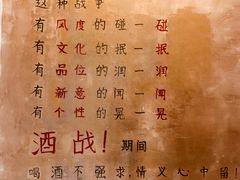 这种战争
有风度的碰一碰
有文化的抿一抿
有品位的润一润
有新意的闻一闻
有个性的晃一晃
酒战！期间
喝酒不强求,情义心中留!